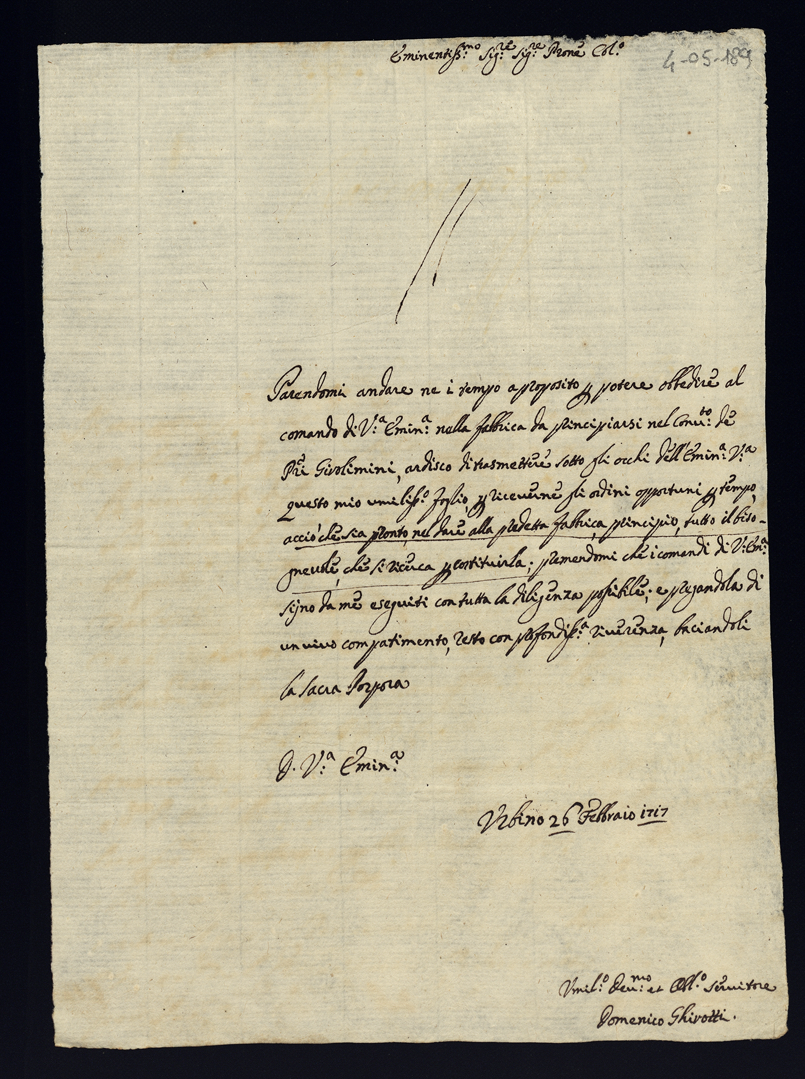 Eminentiss:mo Sig:re Sig:re Prone Col:o
4-05-189
Parendomi andare ne i tempo a proposito p potere obbedire al
comando di V:a Emin:a nella fabbrica da principiarsi nel Conv:to de
Pri Girolimini, ardisco di trasmettere sotto gli occhi dell'Emin:a V:a
questo mio umiliss:o foglio, p riceverne gli ordini opportuni p tempo,
acciò che sia pronto, nel dare alla predetta fabbrica, principio, tutto il biso-
gnevole, che si ricerca p costituirla; premendomi che i comandi di V:a Em:a
siano da me eseguiti con tutta la diligenza possibile; e pregandola di
un vivo compatimento, resto con profondiss:a riverenza, baciandoli
la Sacra Porpora
D. V:a Emin:a
Urbino 26 Febbraio 1717
Umil:o Dev:mo et Obl:o Servitore
Domenico Ghirotti.